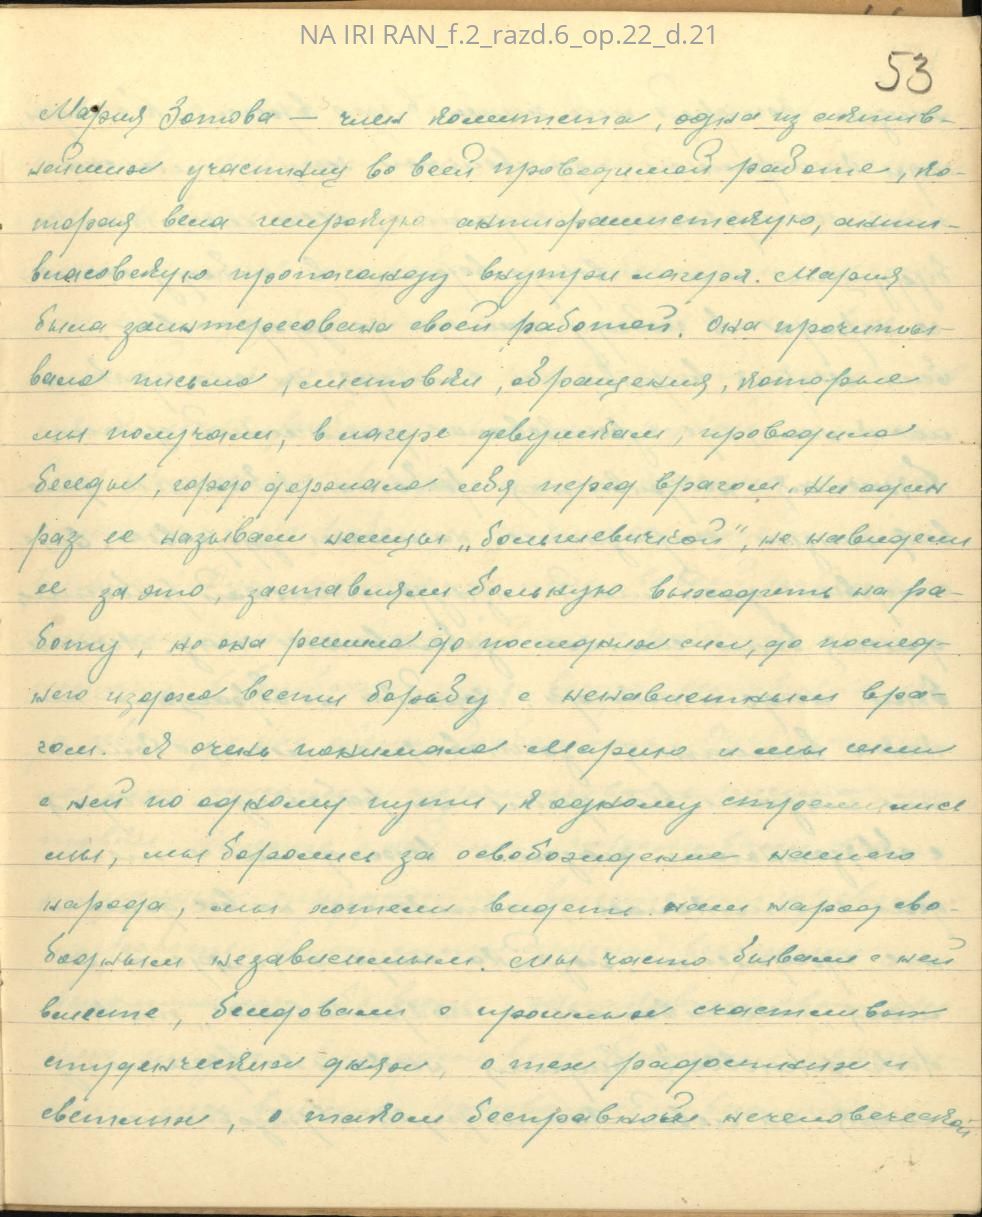 NA IRI RAN_f.2_razd.6_op.22_d.21
53
Мария Зотова — член комитета, одна из актив-
нейших участниц во всей проводимой работе, ко-
торая вела широкую антифашистскую, анти-
власовскую пропаганду внутри лагеря. Мария
была заинтересована своей работой. Она прочиты-
вала письма, листовки, обращения, которые
мы получали, в лагере девушкам, проводила
беседы, гордо держала себя перед врагом. Ни один
раз ее называли немцы „большевичкой", не навидели
ее за это, заставляли больную выходить на ра-
боту, но она решила до последних сил, до послед-
него вести борьбу с ненавистным вра-
гом. Я очень понимала Марию и мы шли
с ней по одному пути, к одному стремились
мы, мы боролись за освобождение нашего
народа, мы хотели видеть наш народ сво
бодным независимым. Мы часто бывали с ней
вместе, беседовали о прошлых счастливых
студенческих днях, о тех радостных и
светлых, о таком бесправной нечеловеческой